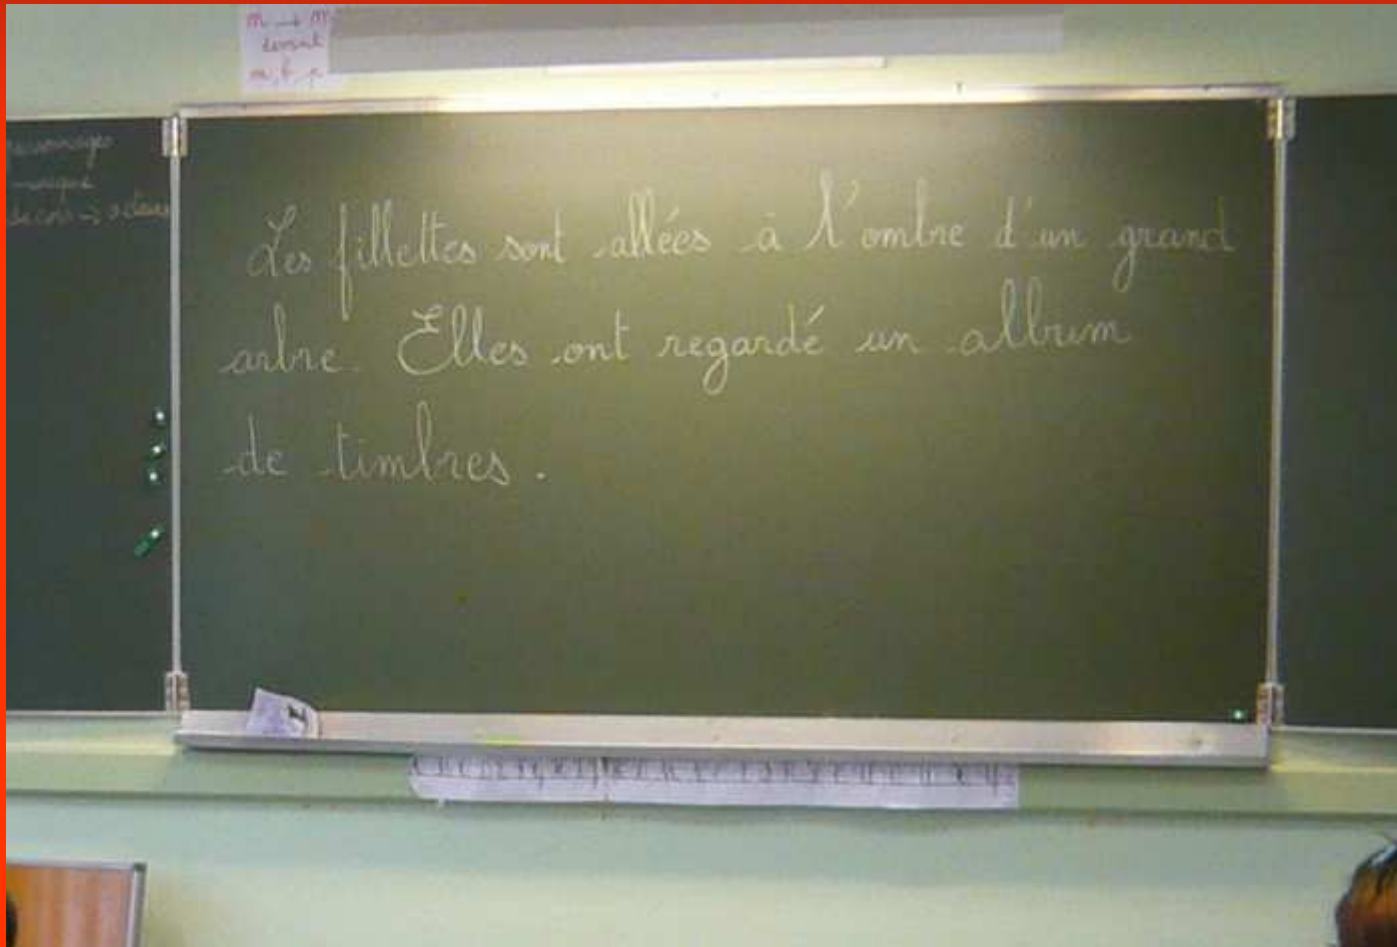 m → m
devant
m, b, p
Les fillettes sont allées à l'ombre d'un grand
arbre. Elles ont regardé un album
de timbres.